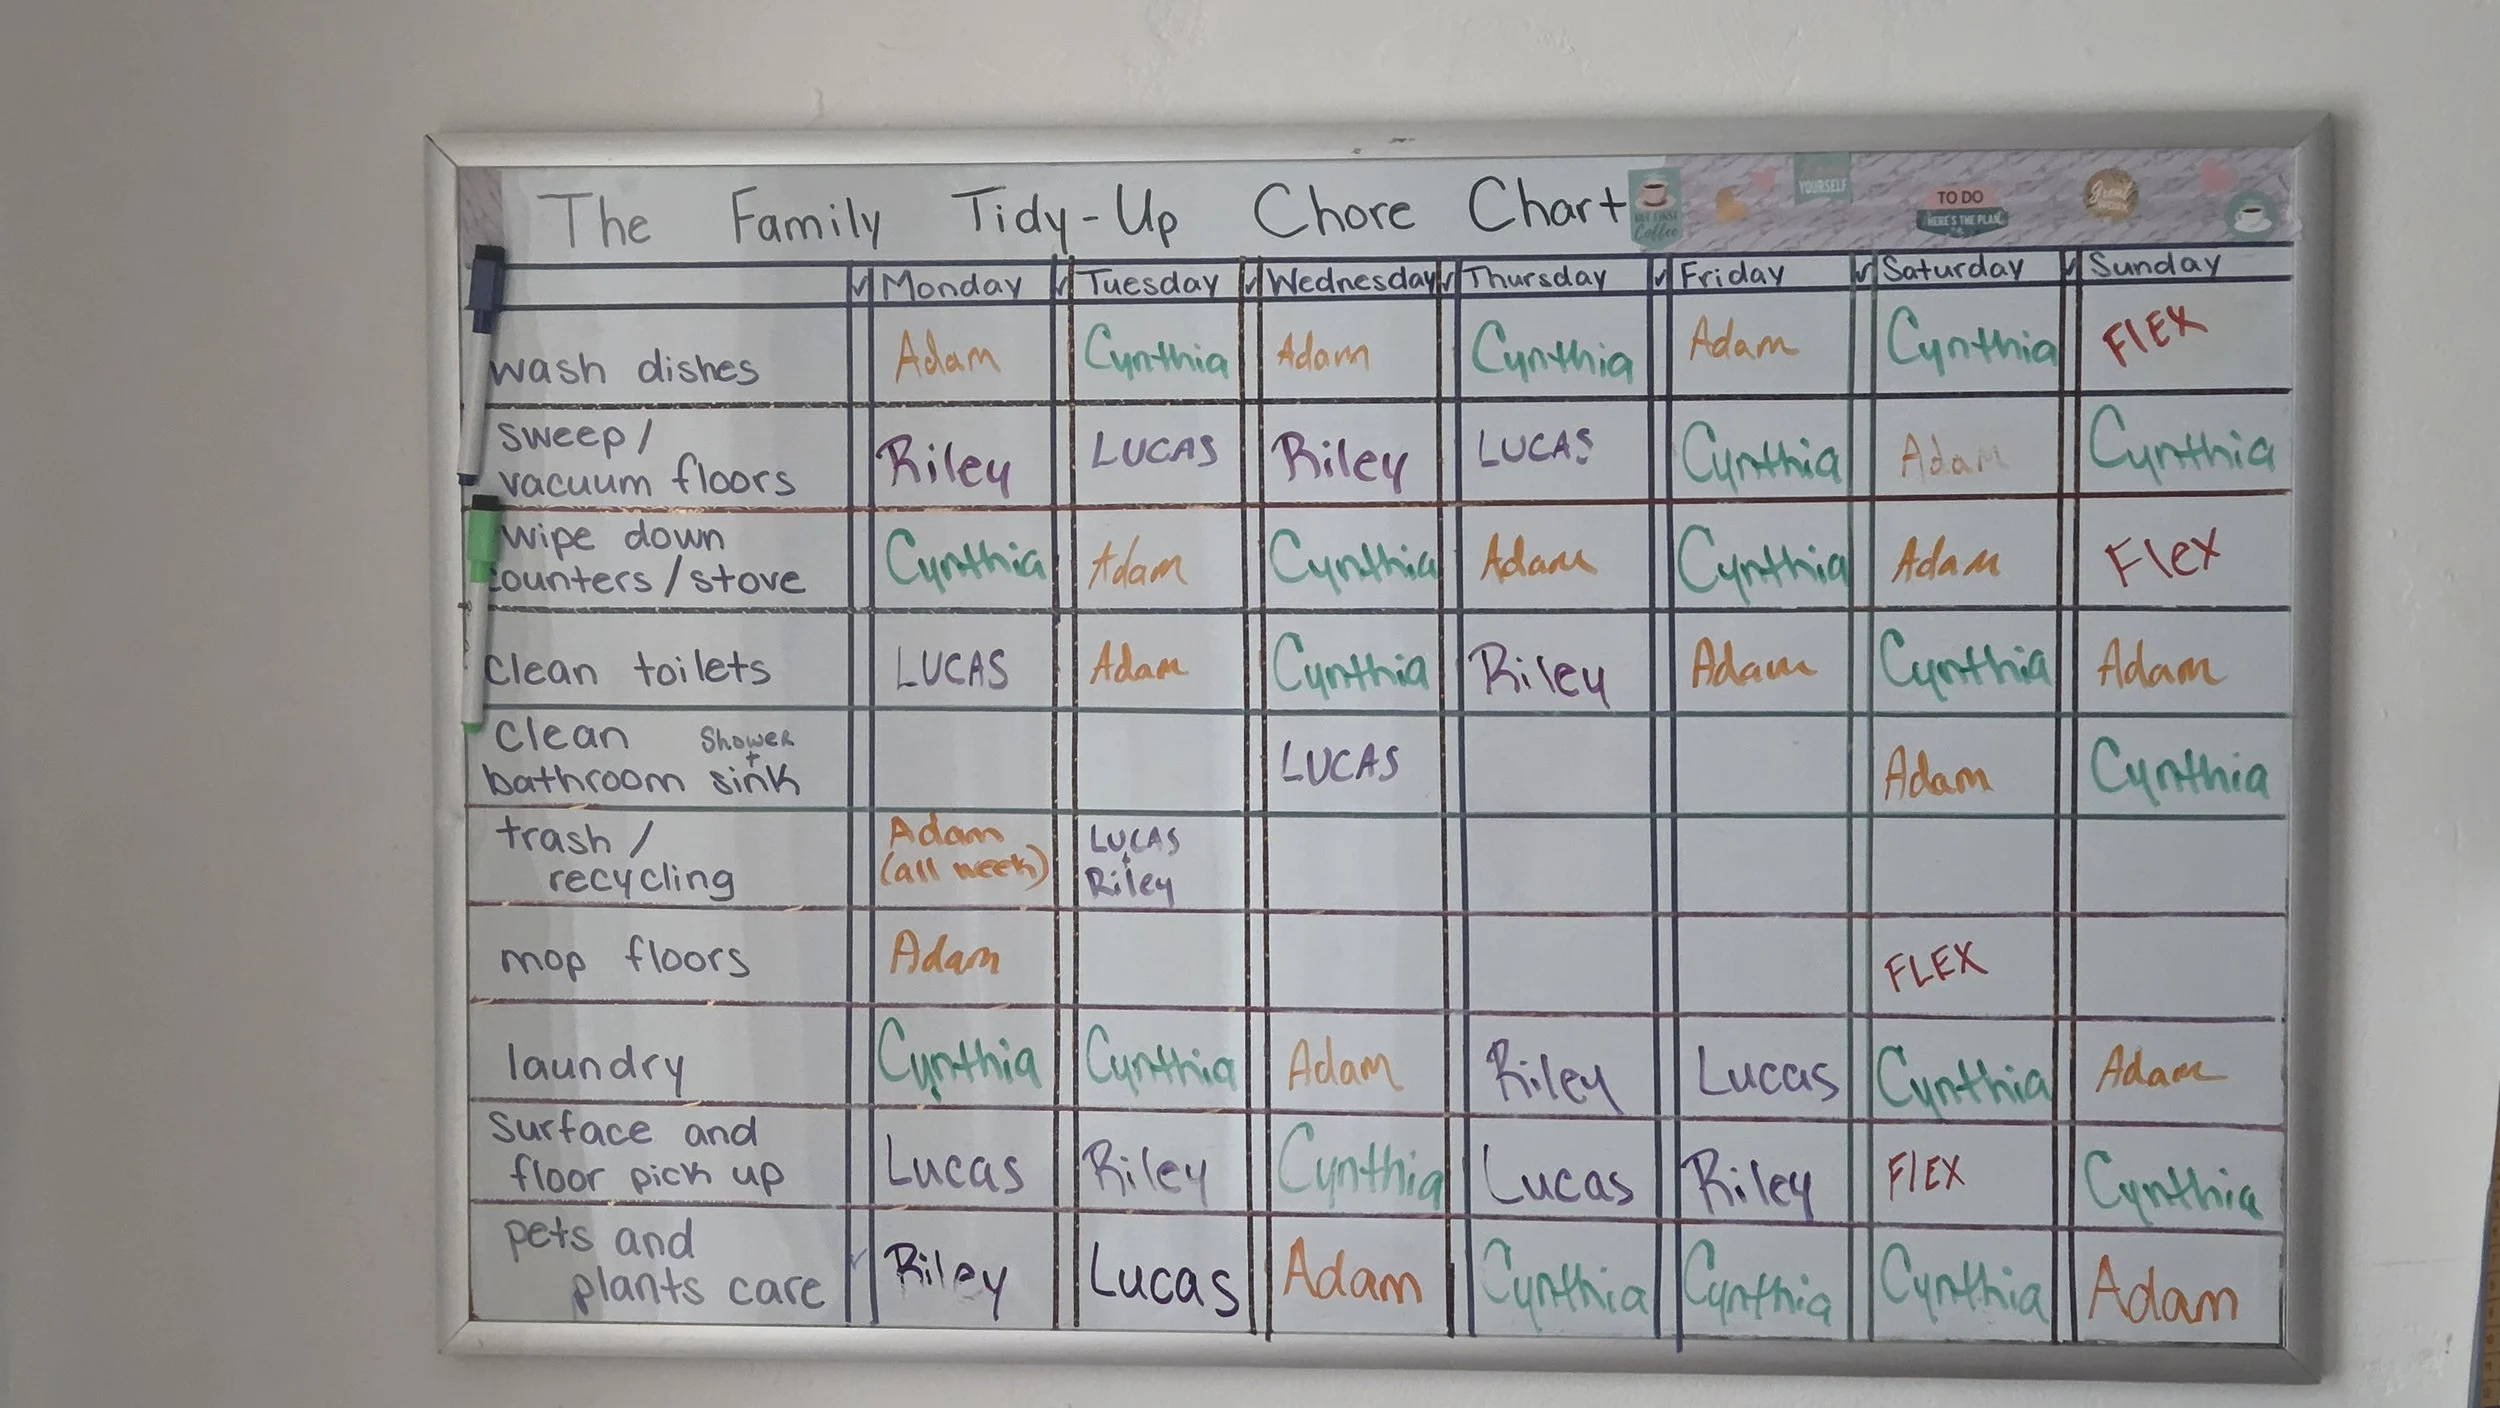 The Family Tidy-Up Chore Chart
BUT FIRST
Coffee
YOURSELF
TO DO
HERE'S THE PLAN
Great
WORK
✓ Monday ✓ Tuesday ✓ Wednesday ✓ Thursday ✓ Friday ✓ Saturday ✓ Sunday
wash dishes Adam Cynthia Adam Cynthia Adam Cynthia FLEX
sweep/
vacuum floors Riley LUCAS Riley LUCAS Cynthia Adam Cynthia
wipe down
counters/stove Cynthia Adam Cynthia Adam Cynthia Adam Flex
clean toilets LUCAS Adam Cynthia Riley Adam Cynthia Adam
clean Shower
+
bathroom sink LUCAS Adam Cynthia
trash/ Adam LUCAS
+
recycling (all week) Riley
mop floors Adam FLEX
laundry Cynthia Cynthia Adam Riley Lucas Cynthia Adam
surface and
floor pick up Lucas Riley Cynthia Lucas Riley FLEX Cynthia
pets and
plants care ✓ Riley Lucas Adam Cynthia Cynthia Cynthia Adam